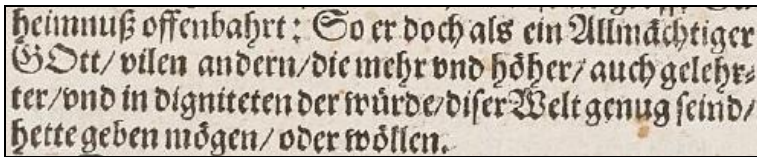 heimnuß offenbahrt: So er doch als ein Allmächtiger
GOtt/ vilen andern/ die mehr vnd höher/ auch gelehr⸗
ter/ vnd in digniteten der würde/ diser Welt genug seind/
hette geben mögen/ oder wöllen.